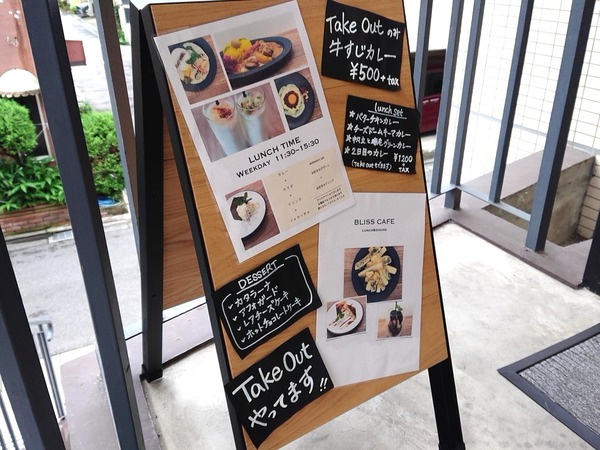 Take Out のみ
牛すじカレー
¥500+tax
lunch set
☆バターチキンカレー
☆チーズドームキーマカレー
☆2日目のカレー
¥1,200
+
TAX
(take outできます)
LUNCH TIME
WEEKDAY 11:30~15:30
BLISS CAFE
DESSERT
✓カタラーナ
✓アフォガード
✓レアチーズケーキ
✓ホットチョコレートケーキ
Take Out
やってます!!